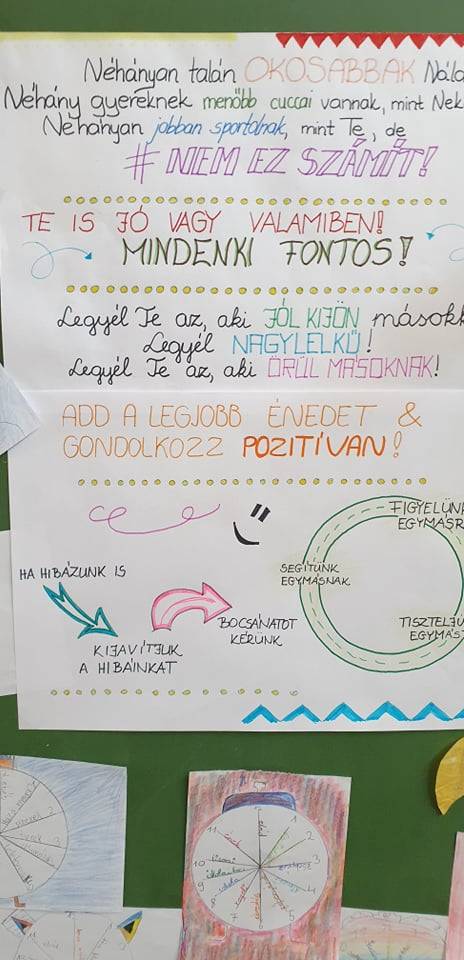 Néhányan talán OKOSABBAK Nála
Néhány gyereknek menőbb cuccai vannak, mint Nek
Néhányan jobban sportolnak, mint Te, de
# NEM EZ SZÁMÍT!
TE IS JÓ VAGY VALAMIBEN!
MINDENKI FONTOS!
Legyél Te az, aki JÓL KIJÖN másokk
Legyél NAGYLELKŰ!
Legyél Te az, aki ÖRÜL MÁSOKNAK!
ADD A LEGJOBB ÉNEDET &
GONDOLKOZZ POZITÍVAN!
FIGYELÜNK
EGYMÁSR
SEGÍTÜNK
EGYMÁSNAK
TISZTELJÜ
EGYMÁST
HA HIBÁZUNK IS
KIJAVÍTJUK
A HIBÁINKAT
BOCSÁNATOT
KÉRÜNK
11 1
10 2
9 3
8 4
7 5